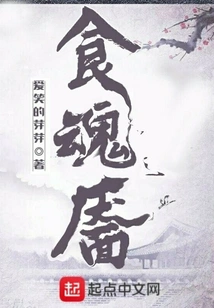 食魂靥
爱笑的芽芽◎著
起 起点中文网